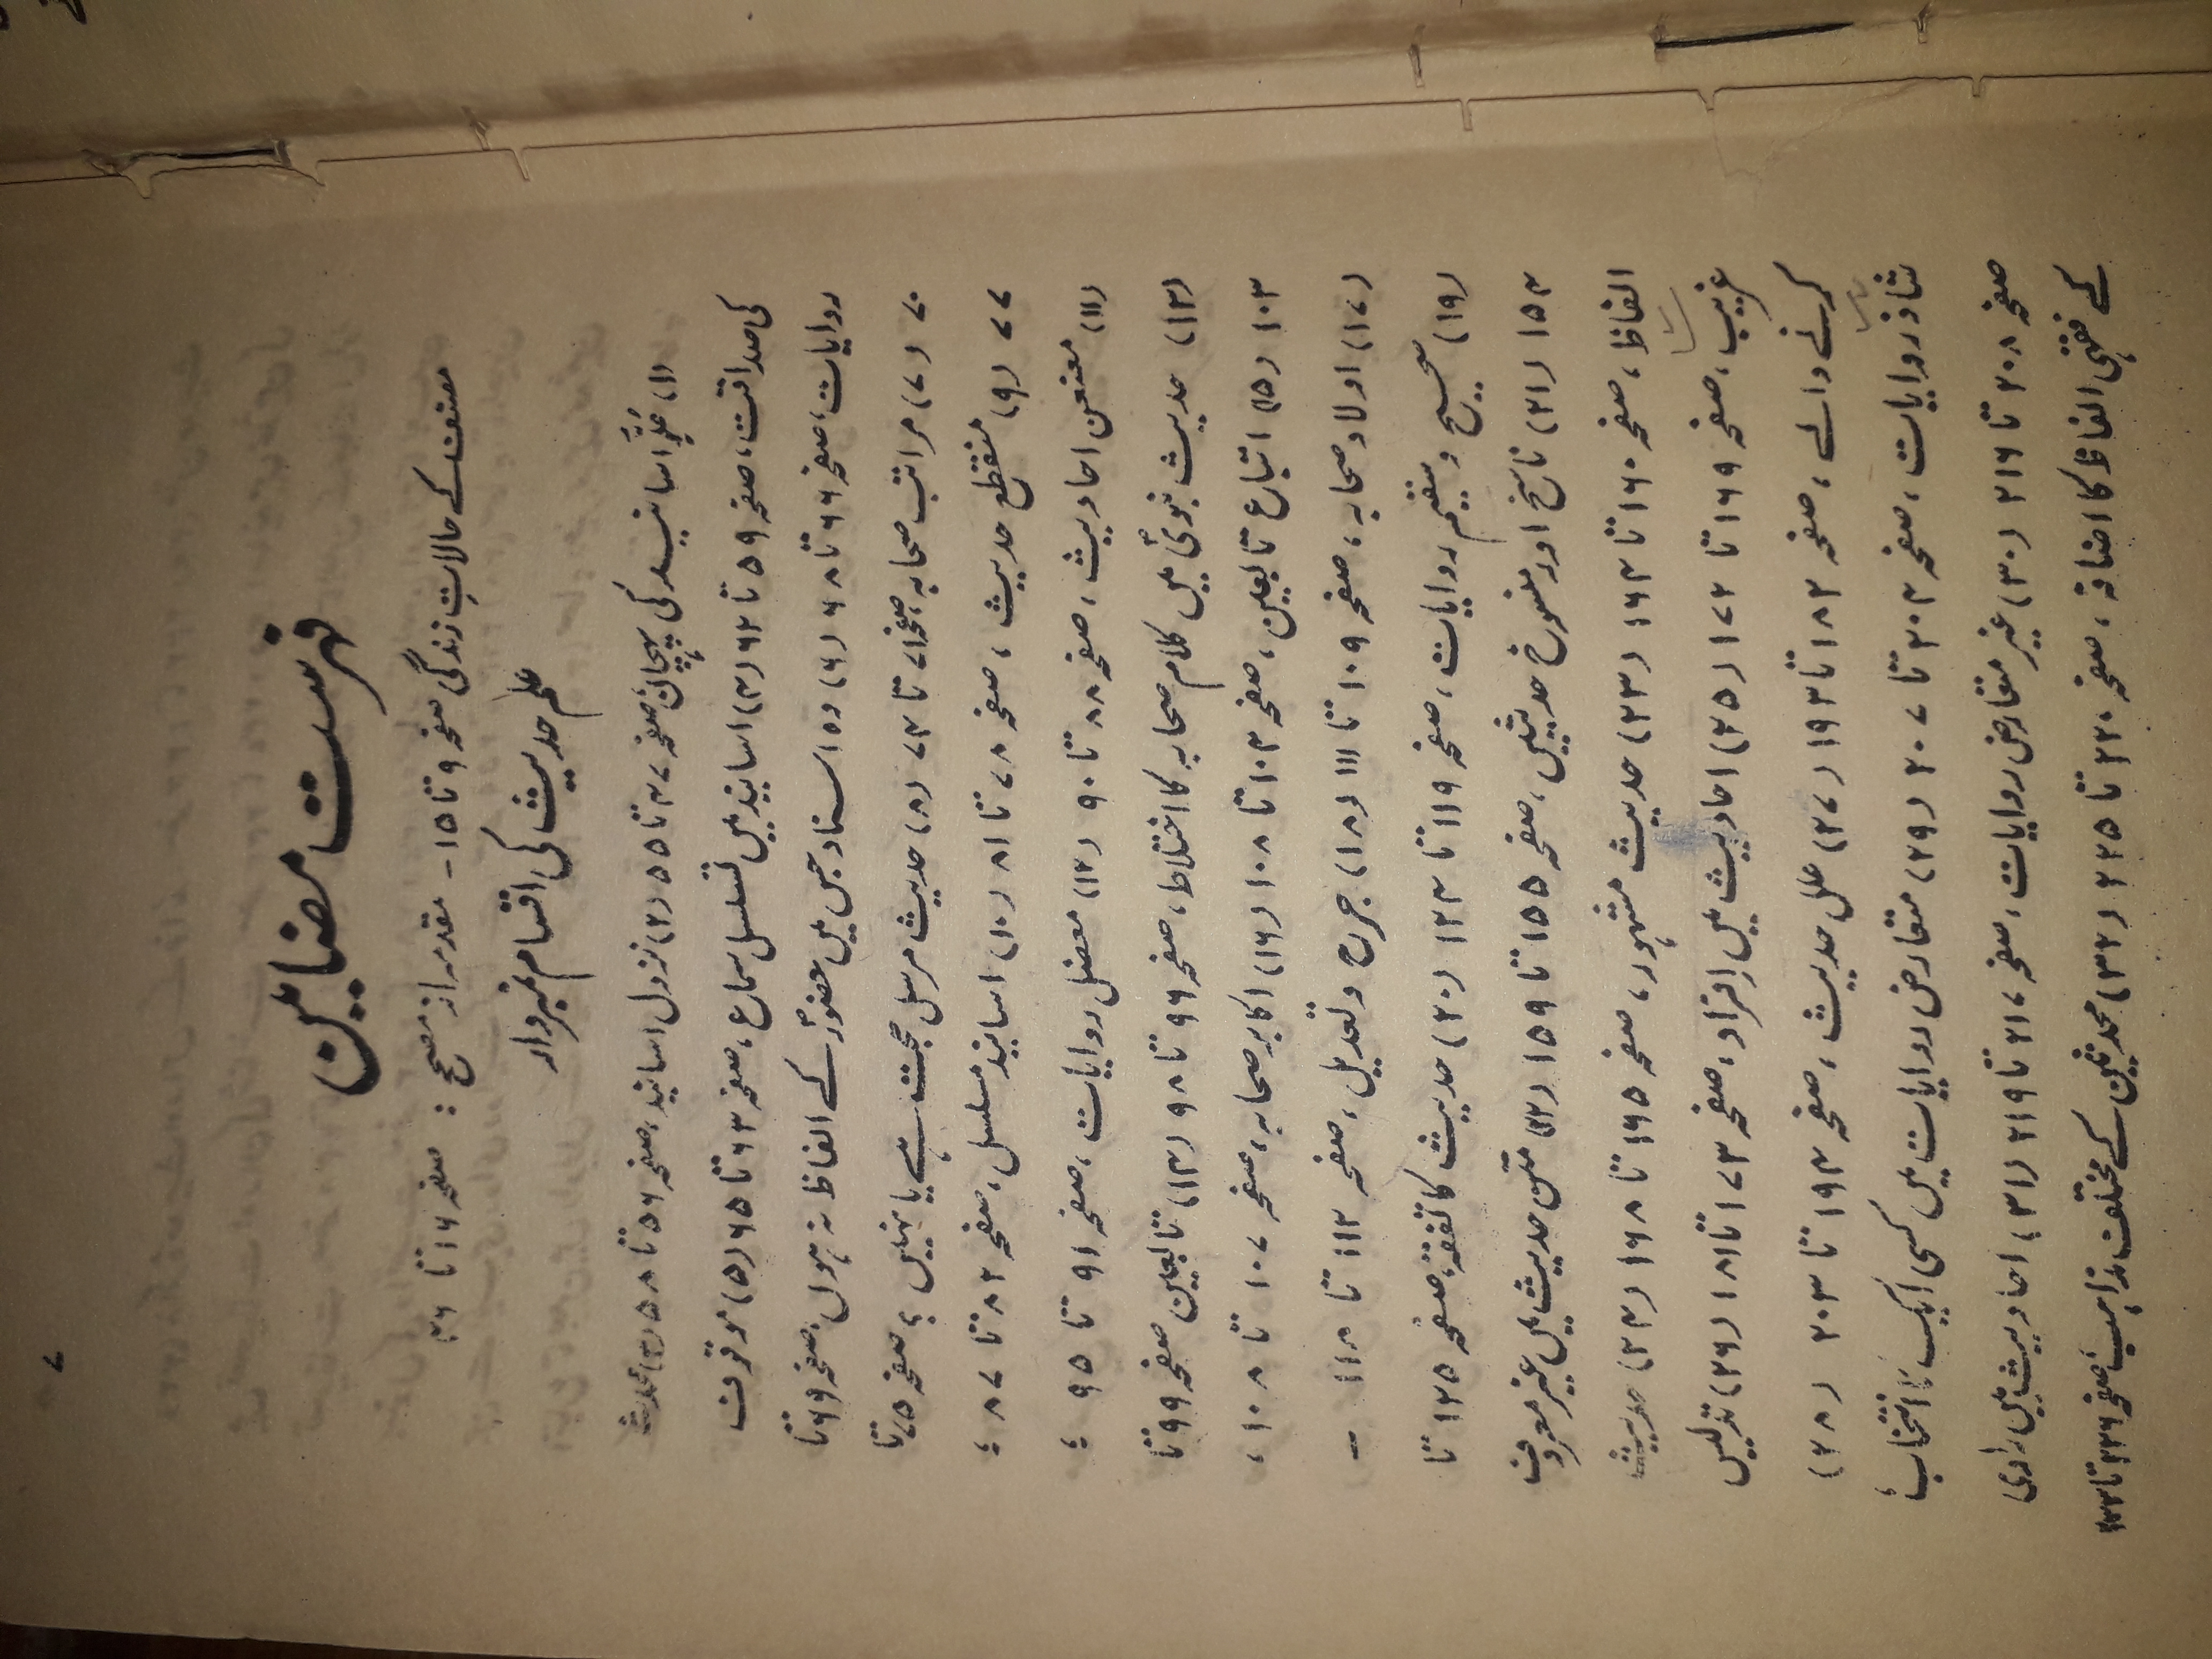 ۷
فہرست مضامین
مصنف کے حالاتِ زندگی صفحہ ۹ تا ۱۵ ۔ مقدمہ از مصحح : صفحہ ۱۶ تا ۴۶
علم حدیث کی اقسام نمبروار
(۱) عُلُوِّ اسانید کی پہچان، صفحہ ۴۷ تا ۵۵ (۲) نزول اسانید، صفحہ ۵۶ تا ۵۸ (۳) محدث
کی صداقت، صفحہ ۵۹ تا ۶۲ (۴) اسانید میں تسلسل سماع، صفحہ ۶۳ تا ۶۵ (۵) موقوف
روایات، صفحہ ۶۶ تا ۶۸ (۶) وہ اسناد جس میں حضورؐ کے الفاظ نہ ہوں، صفحہ ۶۹ تا
۷۰ (۷) مراتب صحابہ، صفحہ ۷۱ تا ۷۴ (۸) حدیث مرسل حجت ہے یا نہیں ؟ صفحہ ۷۵ تا
۷۷ (۹) منقطع حدیث ، صفحہ ۷۸ تا ۸۱ (۱۰) اسانید مسلسل، صفحہ ۸۲ تا ۸۷ ؛
(۱۱) معنعن احادیث، صفحہ ۸۸ تا ۹۰ (۱۲) معضل روایات، صفحہ ۹۱ تا ۹۵ ؛
(۱۳) حدیث نبویؐ میں کلام صحابہ کا اختلاط، صفحہ ۹۶ تا ۹۸ (۱۴) تابعین صفحہ ۹۹ تا
۱۰۳ (۱۵) اتباع تابعین، صفحہ ۱۰۳ تا ۱۰۸ (۱۶) اکابر صحابہ، صفحہ ۱۰۷ تا ۱۰۸ ،
(۱۷) اولاد صحابہ، صفحہ ۱۰۹ تا ۱۱۱ (۱۸) جرح و تعدیل، صفحہ ۱۱۲ تا ۱۱۸ ۔
(۱۹) صحیح و سقیم روایات، صفحہ ۱۱۹ تا ۱۲۴ (۲۰) حدیث کا تفقہ، صفحہ ۱۲۵ تا
۱۵۴ (۲۱) ناسخ اور منسوخ حدیثیں، صفحہ ۱۵۵ تا ۱۵۹ (۲۲) متن حدیث میں غیر معروف
الفاظ، صفحہ ۱۶۰ تا ۱۶۴ (۲۳) حدیث مشہور، صفحہ ۱۶۵ تا ۱۶۸ (۲۴) حدیث
غریب، صفحہ ۱۶۹ تا ۱۷۲ (۲۵) احادیث میں افراد، صفحہ ۱۷۳ تا ۱۸۱ (۲۶) تدلیس
کرنے والے، صفحہ ۱۸۲ تا ۱۹۳ (۲۷) علل حدیث، صفحہ ۱۹۴ تا ۲۰۳ (۲۸)
شاذ روایات، صفحہ ۲۰۴ تا ۲۰۷ (۲۹) متعارض روایات میں کسی ایک کا انتخاب؛
صفحہ ۲۰۸ تا ۲۱۶ (۳۰) غیر متعارض روایات، صفحہ ۲۱۷ تا ۲۱۹ (۳۱) احادیث میں راوی
کے فقہی الفاظ کا اضافہ، صفحہ ۲۲۰ تا ۲۲۵ (۳۲) محدثین کے مختلف مذاہب، صفحہ ۲۲۶ تا